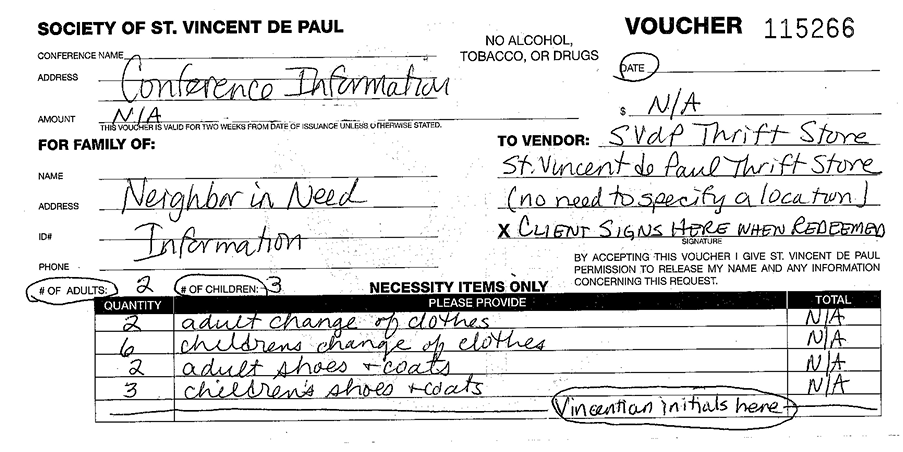 SOCIETY OF ST. VINCENT DE PAUL
VOUCHER 115266
NO ALCOHOL,
TOBACCO, OR DRUGS
CONFERENCE NAME
ADDRESS
Conference Information
DATE
AMOUNT N/A
$ N/A
THIS VOUCHER IS VALID FOR TWO WEEKS FROM DATE OF ISSUANCE UNLESS OTHERWISE STATED.
FOR FAMILY OF:
TO VENDOR: SVdP Thrift Store
St. Vincent de Paul Thrift Store
(no need to specify a location)
NAME
ADDRESS
Neighbor in Need
ID#
Information
PHONE
X CLIENT SIGNS HERE WHEN REDEEMED
SIGNATURE
BY ACCEPTING THIS VOUCHER I GIVE ST. VINCENT DE PAUL
PERMISSION TO RELEASE MY NAME AND ANY INFORMATION
CONCERNING THIS REQUEST.
# OF ADULTS: 2 # OF CHILDREN: 3
NECESSITY ITEMS ONLY
QUANTITY PLEASE PROVIDE TOTAL
2 adult change of clothes N/A
6 childrens change of clothes N/A
2 adult shoes + coats N/A
3 children's shoes + coats N/A
Vincentian initials here